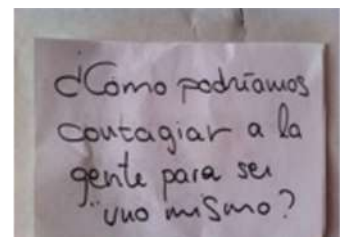 ¿Como podríamos
contagiar a la
gente para ser
"uno mismo?